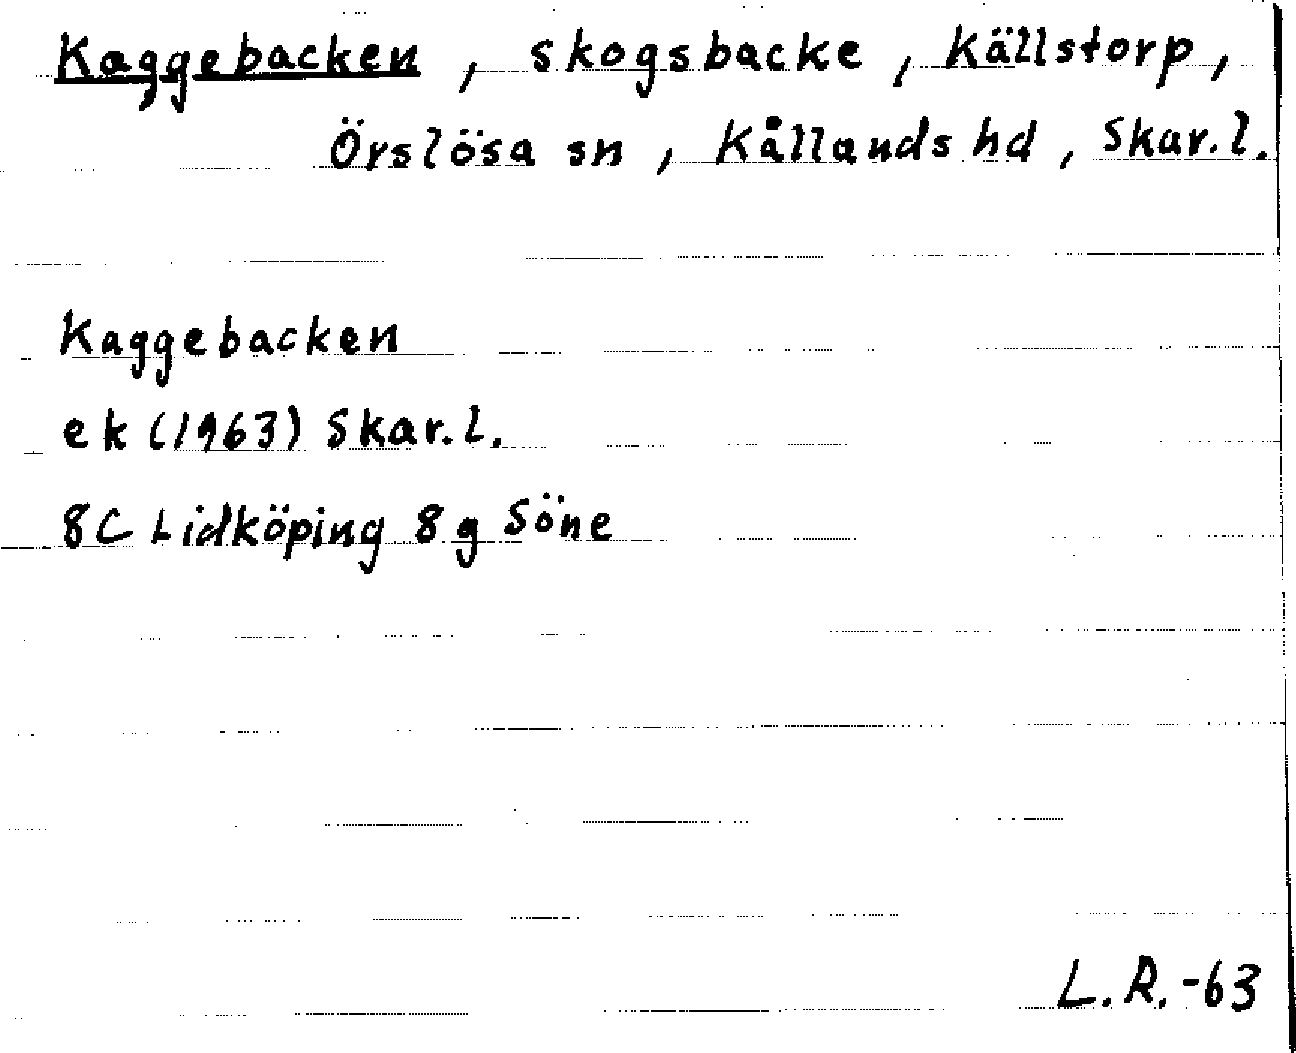 Kaggebacken, skogsbacke, Källstorp,
Örslösa sn, Kållands hd, Skar.l.
Kaggebacken
ek (1963) Skar.l.
8C Lidköping 8g Söne
L.R.-63